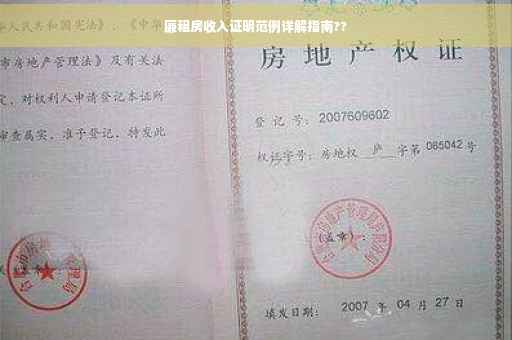 廉租房收入证明范例详解指南??
人民共和国宪法》、《中
市房地产管理法》及有关法
定，对权利人申请登记本证所
审查属实，准予登记，特发此
房地产权证
登记号：2007609602
权证字号：房地权 庐 字第 085042 号
(盖章)：
填发日期： 2007 年 04 月 27 日